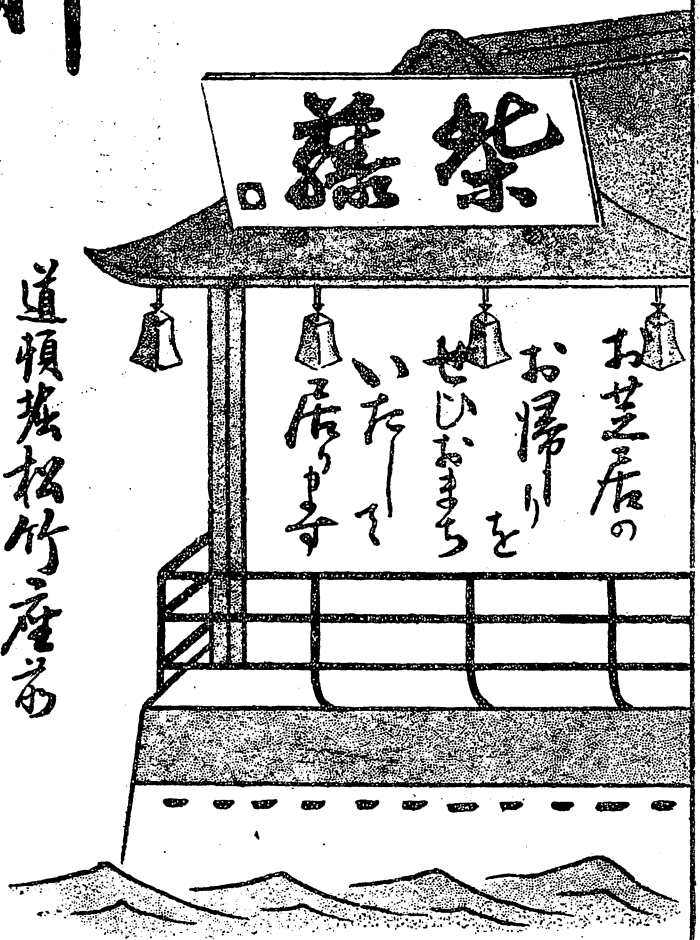 柴藤
お芝居の
お帰りを
せひおまち
いたして
居ります
道頓堀松竹座前